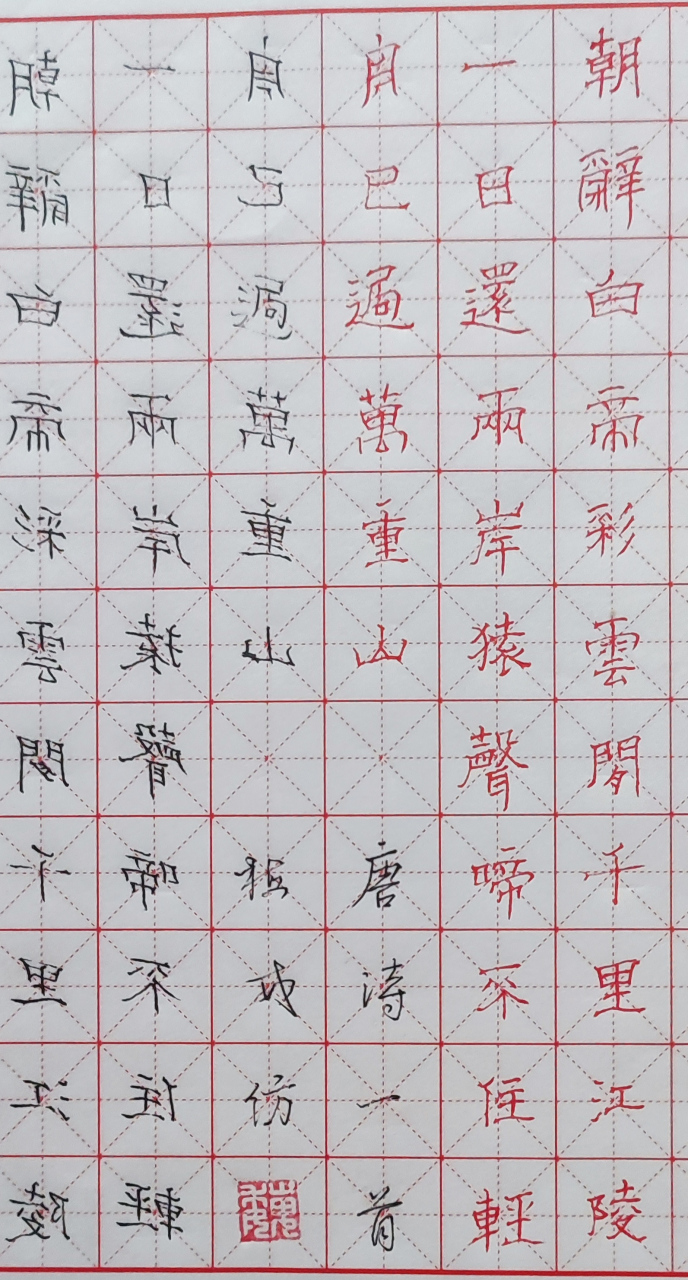 朝辭白帝彩雲閒千里江陵
一日還兩岸猿聲啼不住輕
舟已過萬重山 唐詩一首
舟已過萬重山 仿
一日還兩岸猿聲啼不住輕
朝辭白帝彩雲閒千里江陵